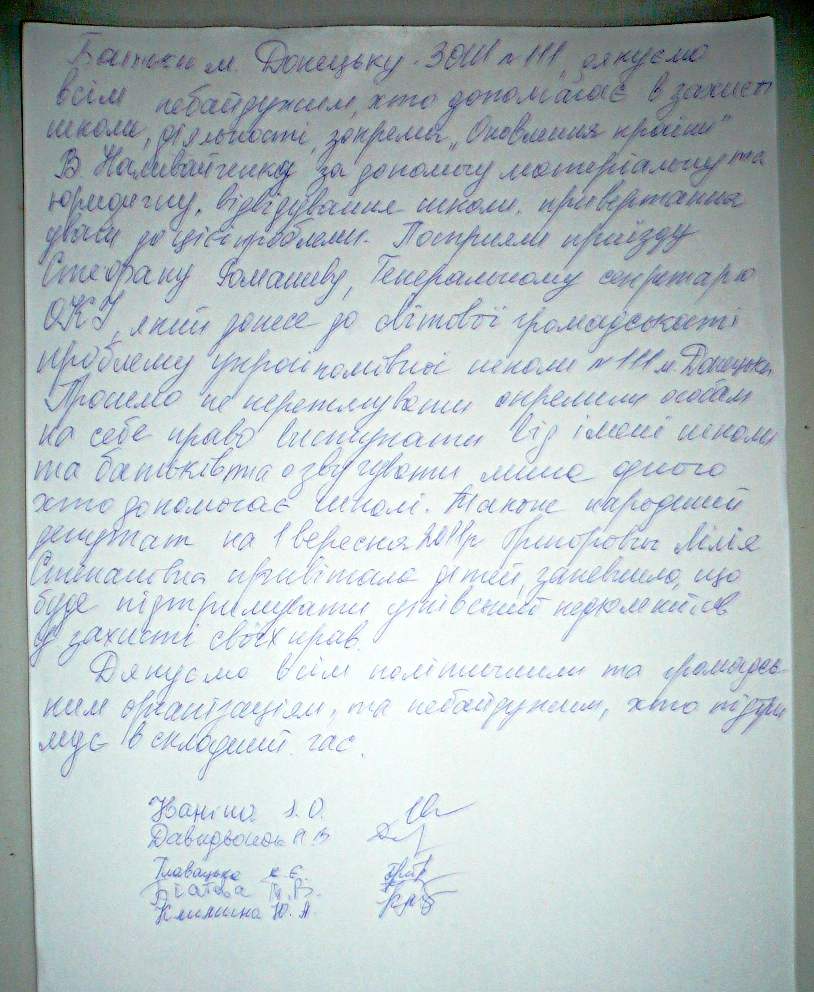 Батьки м. Донецьку. ЗОШ №111, дякуємо
всім небайдужим, хто допомагає в захисті
школи, діяльності, зокрема, „Оновлення країни"
В. Наливайченку за допомогу матеріальну та
юридичну, відвідування школи, привертання
уваги до цієї проблеми. Посприяли приїзду
Стефану Романіву, Генеральному секретарю
ОКУ, який донесе до світової громадськості
проблему україномовної школи №111 м. Донецька
Просимо не перетягувати окремим особам
на себе право виступати від імені школи
та батьків та озвучувати лише одного
хто допомагає школі. Також народний
депутат на 1 вересня 2011р Григорович Лілія
Степановна привітала дітей, запевнила, що
буде підтримувати учнівський
у захисті своїх прав.
Дякуємо всім політичним та громадсь-
ким організаціям, та небайдужим, хто підтри
мує в складний час.
І.О.
Главацька К.Є.
В.
Климина Ю.А.